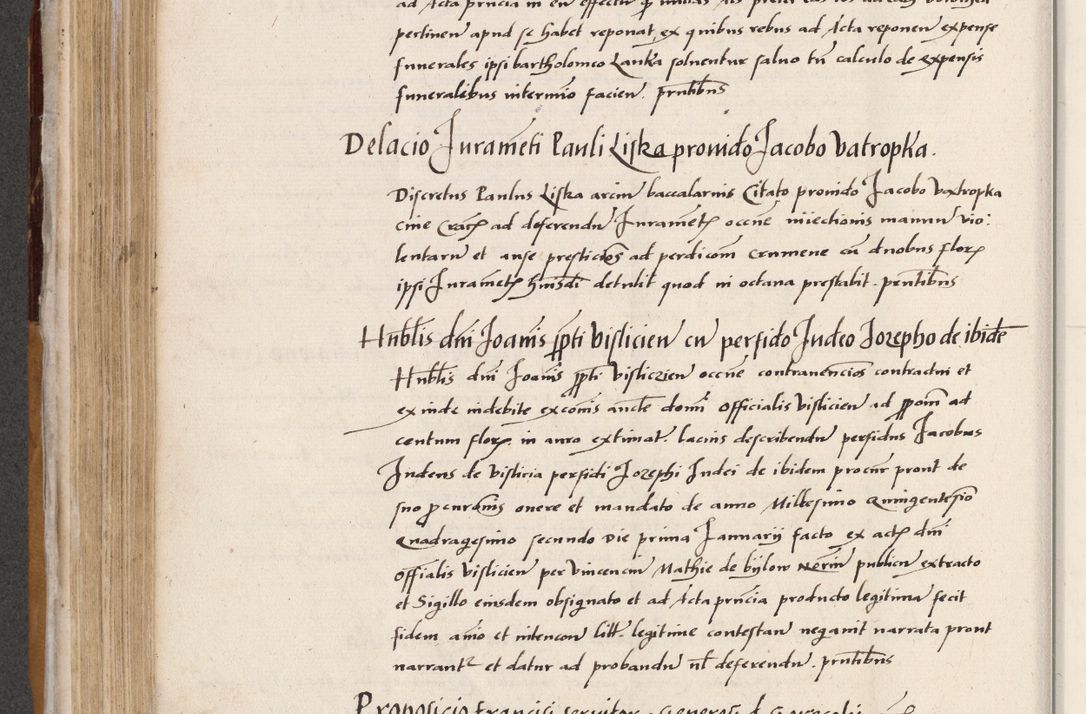 pertinen apud se habet reponat, ex quibus rebus ad Acta reponen expense
funerales ipsi bartholomeo Lanka soluentur saluo tn calculo de expensis
funeralibus intermio facien. pnntibus
Delacio Iurameti Pauli Liska prouido Iacobo Vatropka.
Discretus Paulus Liska arciu baccalarius Citato prouido Iacobo Vaxtropka
ciue ad deferendu Iuramet occne iniectionis manuu vio:
lentaru et anse ad perdicom crumene cu duobus flor
ipsi Iuramet huiusdi detulit quod in octaua prestabit. pntibus
Hnblis dni Ioanis ppti Vislicien cu perfido Iudeo Iozepho de ibide
Hnblis dni Ioanis ppti Visliczien occne contrauencios contradui et
exinde indebite excois aucte domi Officialis Vislicien ad ppom ad
centum flor in auro extimat. lacius describendu perfidus Iacobus
Iudeus de Vislicia perfidi Iozephi Iudei de ibidem procur prout de
suo pcurois onere et mandato de anno Millesimo Quingentesio
Quadragesimo secundo Die prima Ianuarij facto ex act dni
Offialis Vislicien per Vincenciu Mathie de bijlow Notriu publicu extracto
et Sigillo eiusdem obsignato et ad Acta pnncia producto legitima fecit
fidem anio et intencon litt. legitime contestan negauit narrata prout
narrant et datur ad probandu nl deferendu. pnntibus